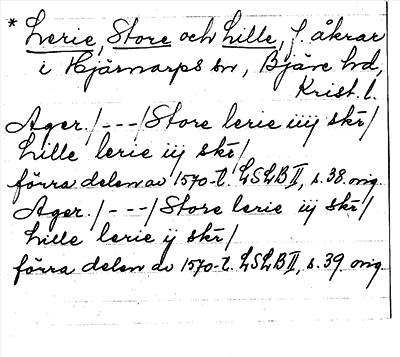 * Lerie, Store och Lille, f. åkrar
i Hjärnarps sn, Bjäre hd,
Krist. l.
Ager. / - - - / Store lerie iiij skr /
Lille lerie iij skr /
förra delen av 1570-t. LSLB II, s. 38. orig.
Ager. / - - - / Store lerie iij skr /
Lille lerie ij skr /
förra delen av 1570-t. LSLB II, s. 39. orig.